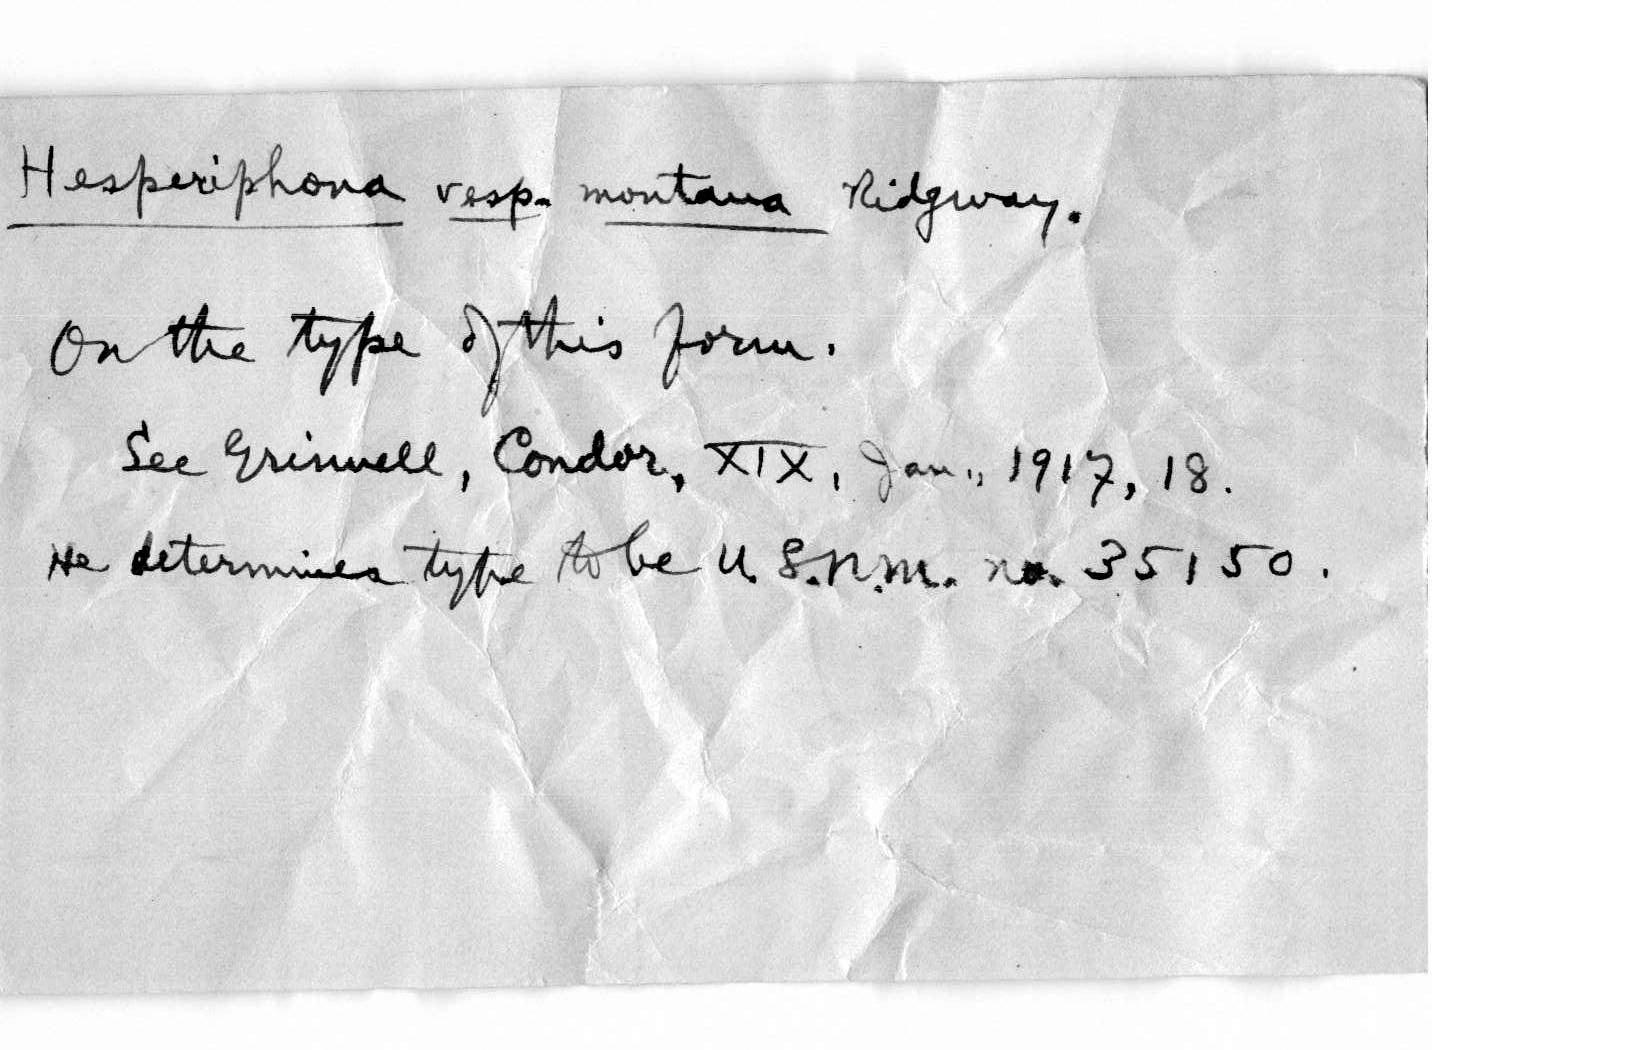 Hesperiphona vesp. montana Ridgway.
On the type of this form.
See Grinnell, Condor, XIX, Jan., 1917, 18.
He determines type to be U.S.N.M. no. 35150.